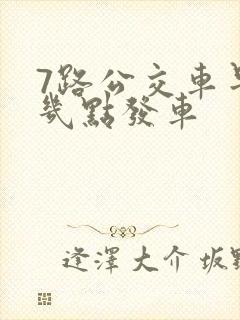 7路公交車早
幾點發車
逢澤大介 坂野